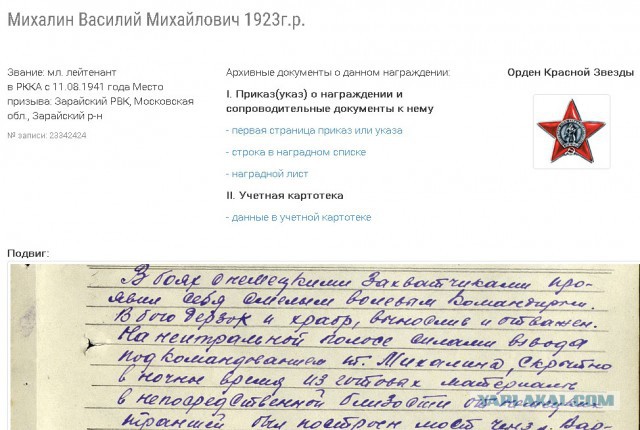 Михалин Василий Михайлович 1923г.р.
Звание: мл. лейтенант
в РККА с 11.08.1941 года Место
призыва: Зарайский РВК, Московская
обл., Зарайский р-н
№ записи: 23342424
Архивные документы о данном награждении:
I. Приказ(указ) о награждении и
сопроводительные документы к нему
- первая страница приказ или указа
- строка в наградном списке
- наградной лист
II. Учетная картотека
- данные в учетной картотеке
Орден Красной Звезды
Подвиг:
В боях с немецкими захватчиками про-
явил себя смелым волевым командиром.
В бою дерзок и храбр, вынослив и отважен.
На нейтральной полосе силами взвода
под командованием мл. Михалина, скрытно
в ночное время из готовых материалов
в непосредственной близости от немецких
траншей был построен мост через р.
YAPLAKAL.COM